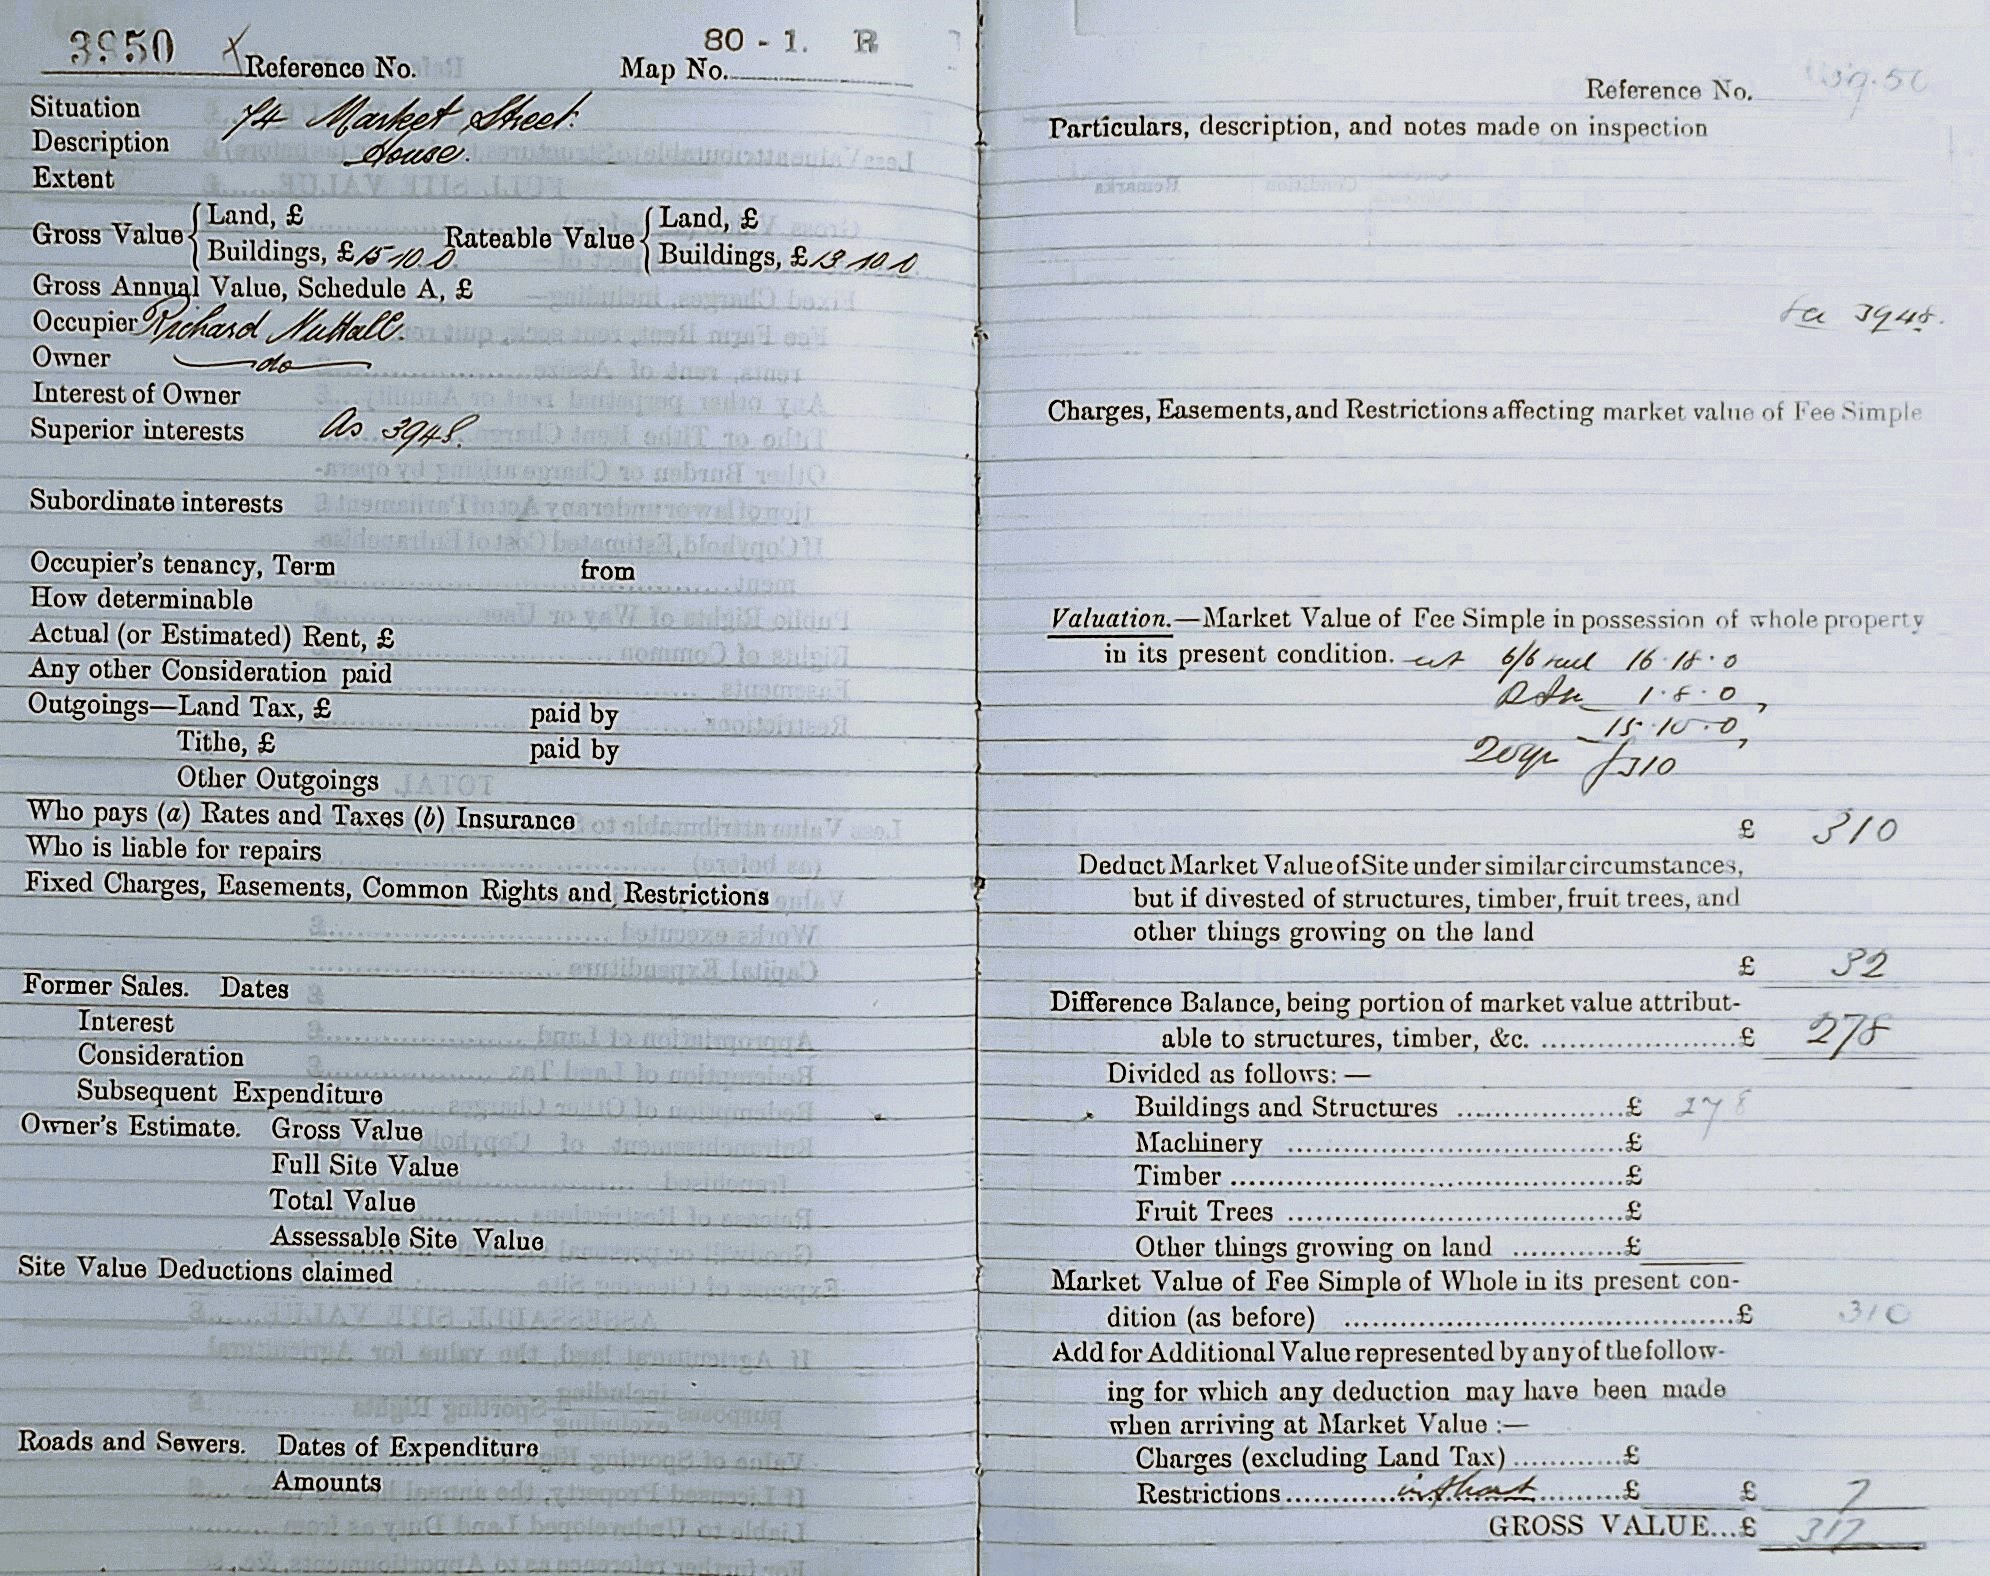 3950 x Reference No. Map No. 80 - 1. R
Situation 74 Market Street.
Description House.
Extent
Gross Value { Land, £
Buildings, £ 15-10.0. Rateable Value { Land, £
Buildings, £ 13 10 0
Gross Annual Value, Schedule A, £
Occupier Richard Nuttall.
Owner do
Interest of Owner
Superior interests As 3948.
Subordinate interests
Occupier's tenancy, Term from
How determinable
Actual (or Estimated) Rent, £
Any other Consideration paid
Outgoings—Land Tax, £ paid by
Tithe, £ paid by
Other Outgoings
Who pays (a) Rates and Taxes (b) Insurance
Who is liable for repairs
Fixed Charges, Easements, Common Rights and Restrictions
Former Sales. Dates
Interest
Consideration
Subsequent Expenditure
Owner's Estimate. Gross Value
Full Site Value
Total Value
Assessable Site Value
Site Value Deductions claimed
Roads and Sewers. Dates of Expenditure
Amounts
Reference No. 39.50
Particulars, description, and notes made on inspection
3948.
Charges, Easements, and Restrictions affecting market value of Fee Simple
Valuation.—Market Value of Fee Simple in possession of whole property
in its present condition. 6/6 16.18.0
1.8.0
15.10.0
20 yr £310
£ 310
Deduct Market Value of Site under similar circumstances,
but if divested of structures, timber, fruit trees, and
other things growing on the land
£ 32
Difference Balance, being portion of market value attribut-
able to structures, timber, &c. £ 278
Divided as follows:—
Buildings and Structures £ 278
Machinery £
Timber £
Fruit Trees £
Other things growing on land £
Market Value of Fee Simple of Whole in its present con-
dition (as before) £ 310
Add for Additional Value represented by any of the follow-
ing for which any deduction may have been made
when arriving at Market Value :—
Charges (excluding Land Tax) £
Restrictions £ £ 7
GROSS VALUE...£ 317